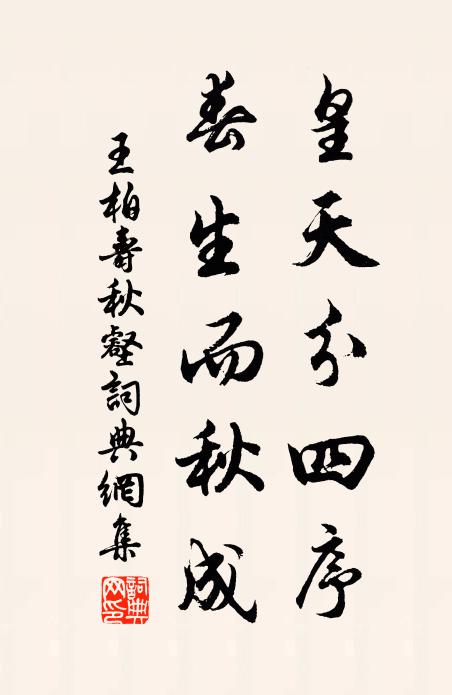 皇天分四序
春生而秋成
王柏壽秋壑詞典網集
詞典網印